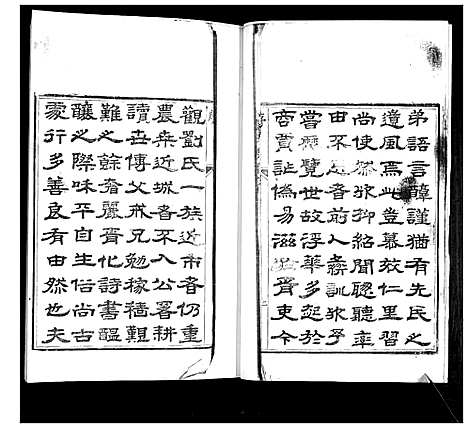 弟語言謹猶有先民之
遺風焉此豈慕效仁里習
尚使然抑紹聞聽聽率
由不愆者前人彝訓歟予
嘗歷覽世故浮華多起於
商賈詐偽易滋胥吏今
觀劉氏一族近市者仍重
農桑近城者不入公署耕
讀世傳父戒兄勉稼穡艱
難之餘奢麗胥化詩書醞
釀之際味平自生俗尚古
處行多善良有由然也夫